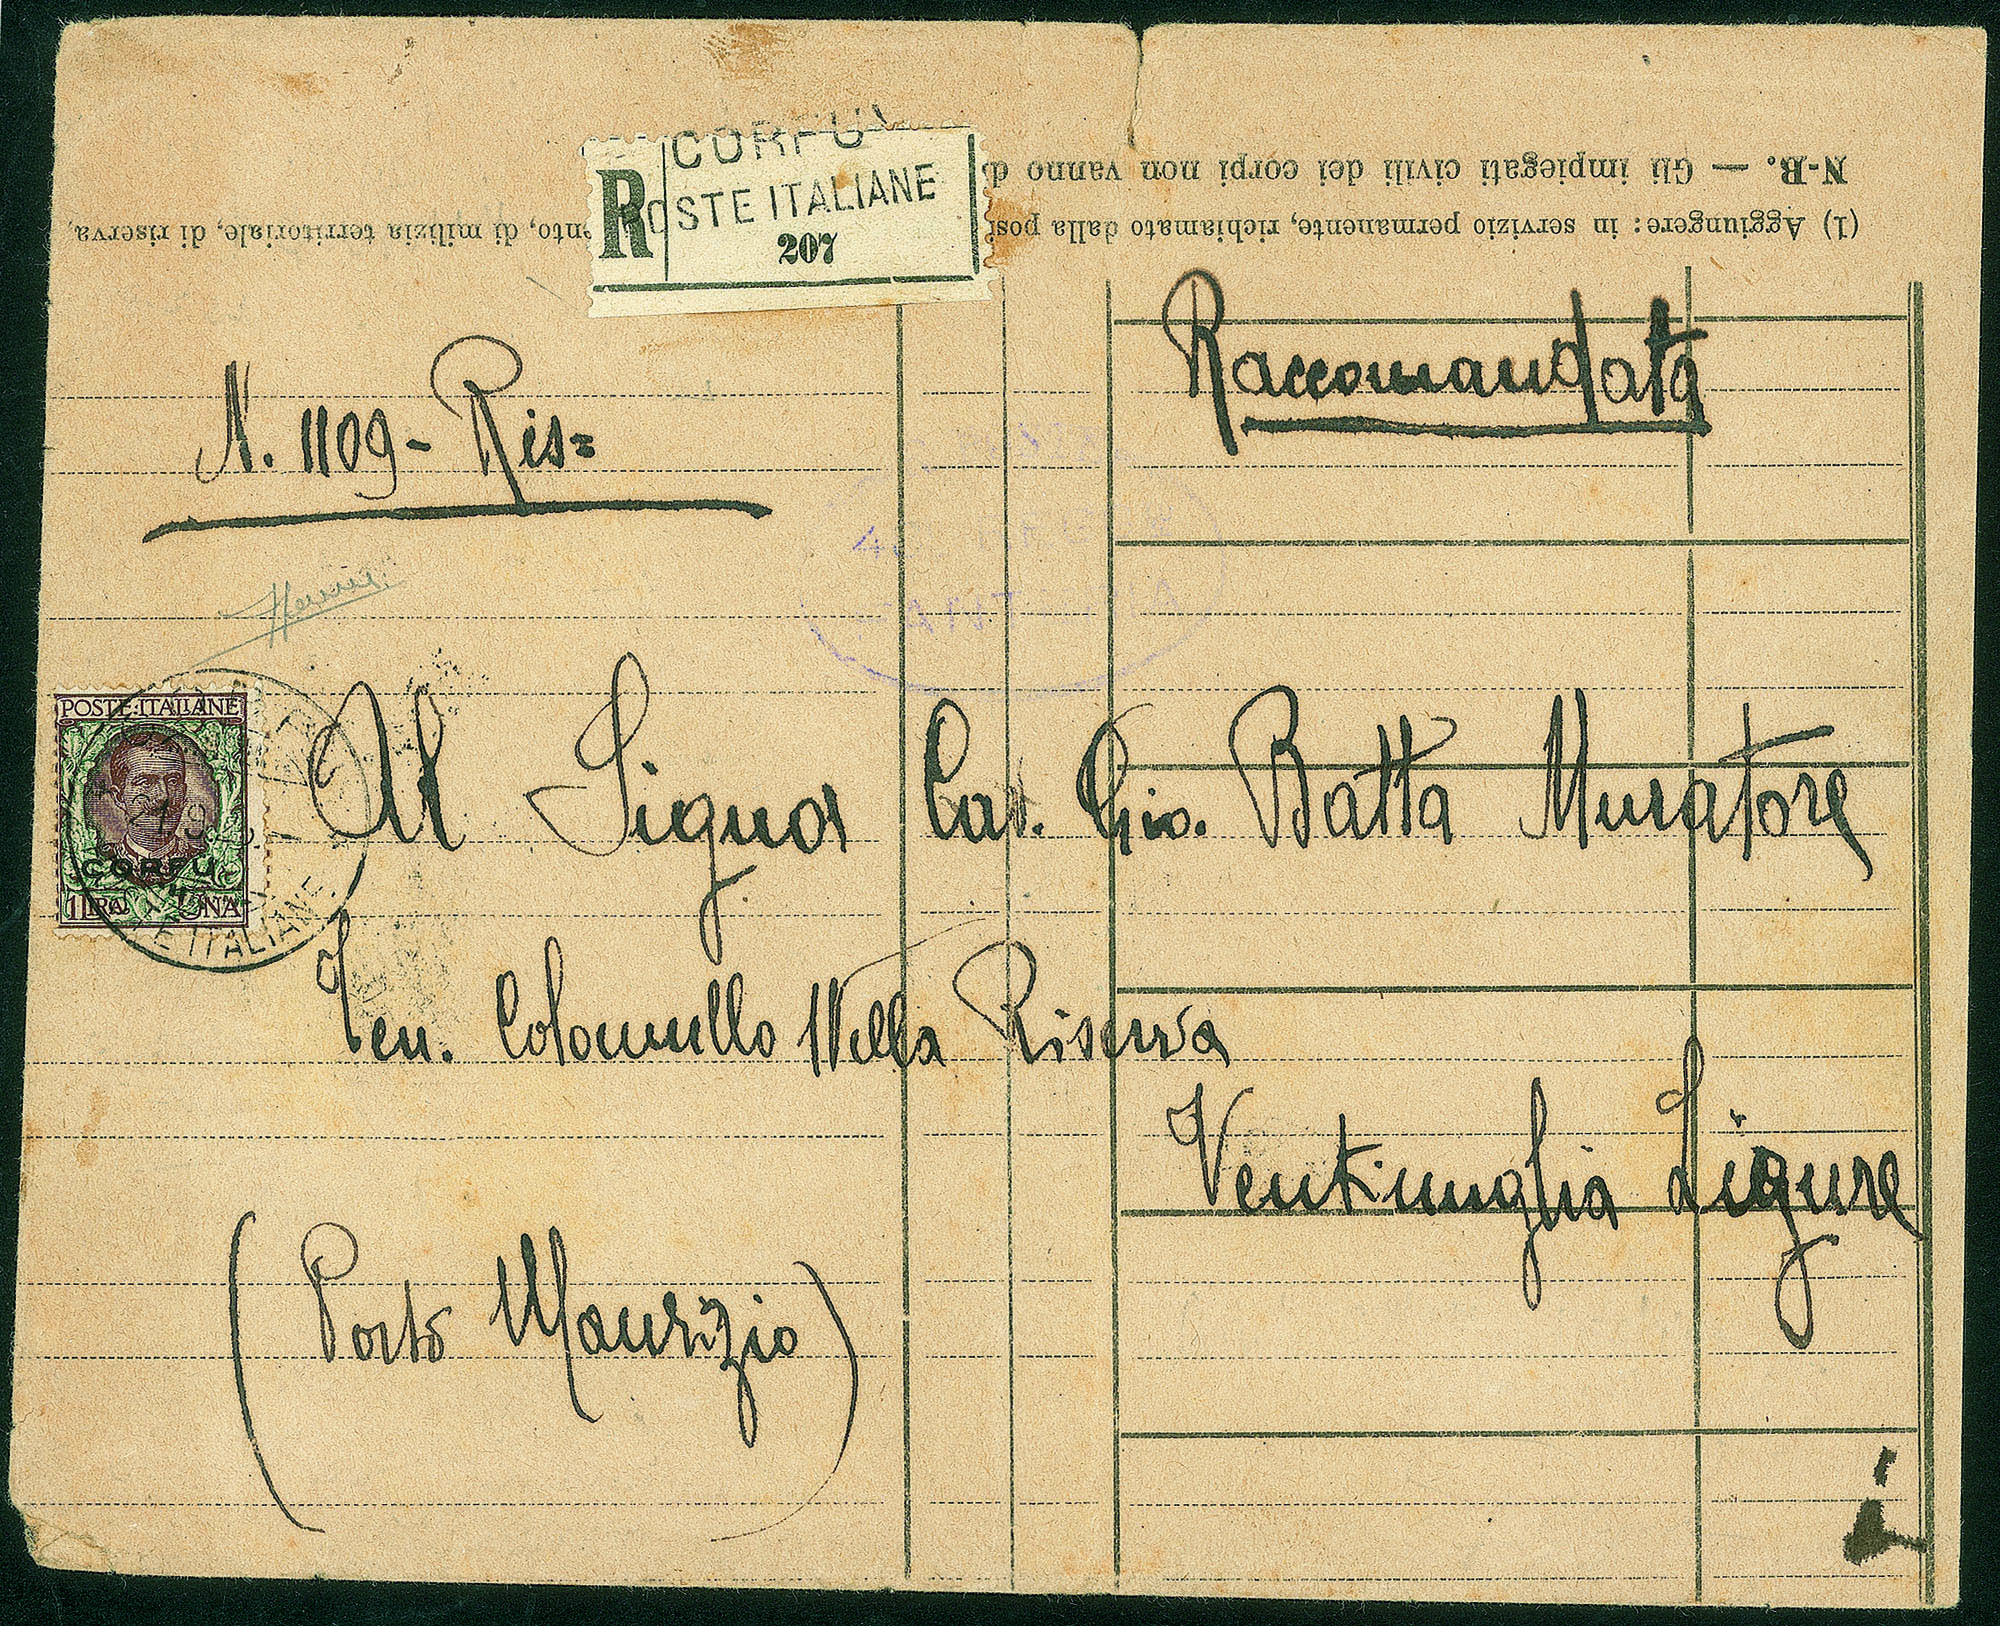 CORFU'
POSTE ITALIANE
R
207
N-B. — Gli impiegati civili dei corpi non vanno
(1) Aggiungere: in servizio permanente, richiamato dalla
di milizia territoriale, di riserva,
Raccomandata
N. 1109 - Ris=
POSTE·ITALIANE
CORFU
1 LIRA UNA
ITALIANE
Al Signor Cav. Gio. Batta Muratore
Ten. Colonnello Nella Riserva
Ventimiglia Ligure
(Porto Maurizio)